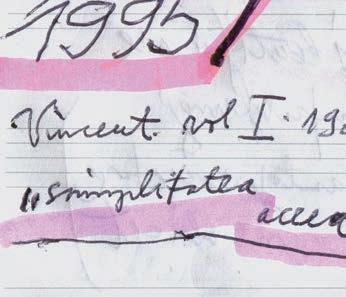 1995
Vincent. vol I. 19
„simplitatea
aceea